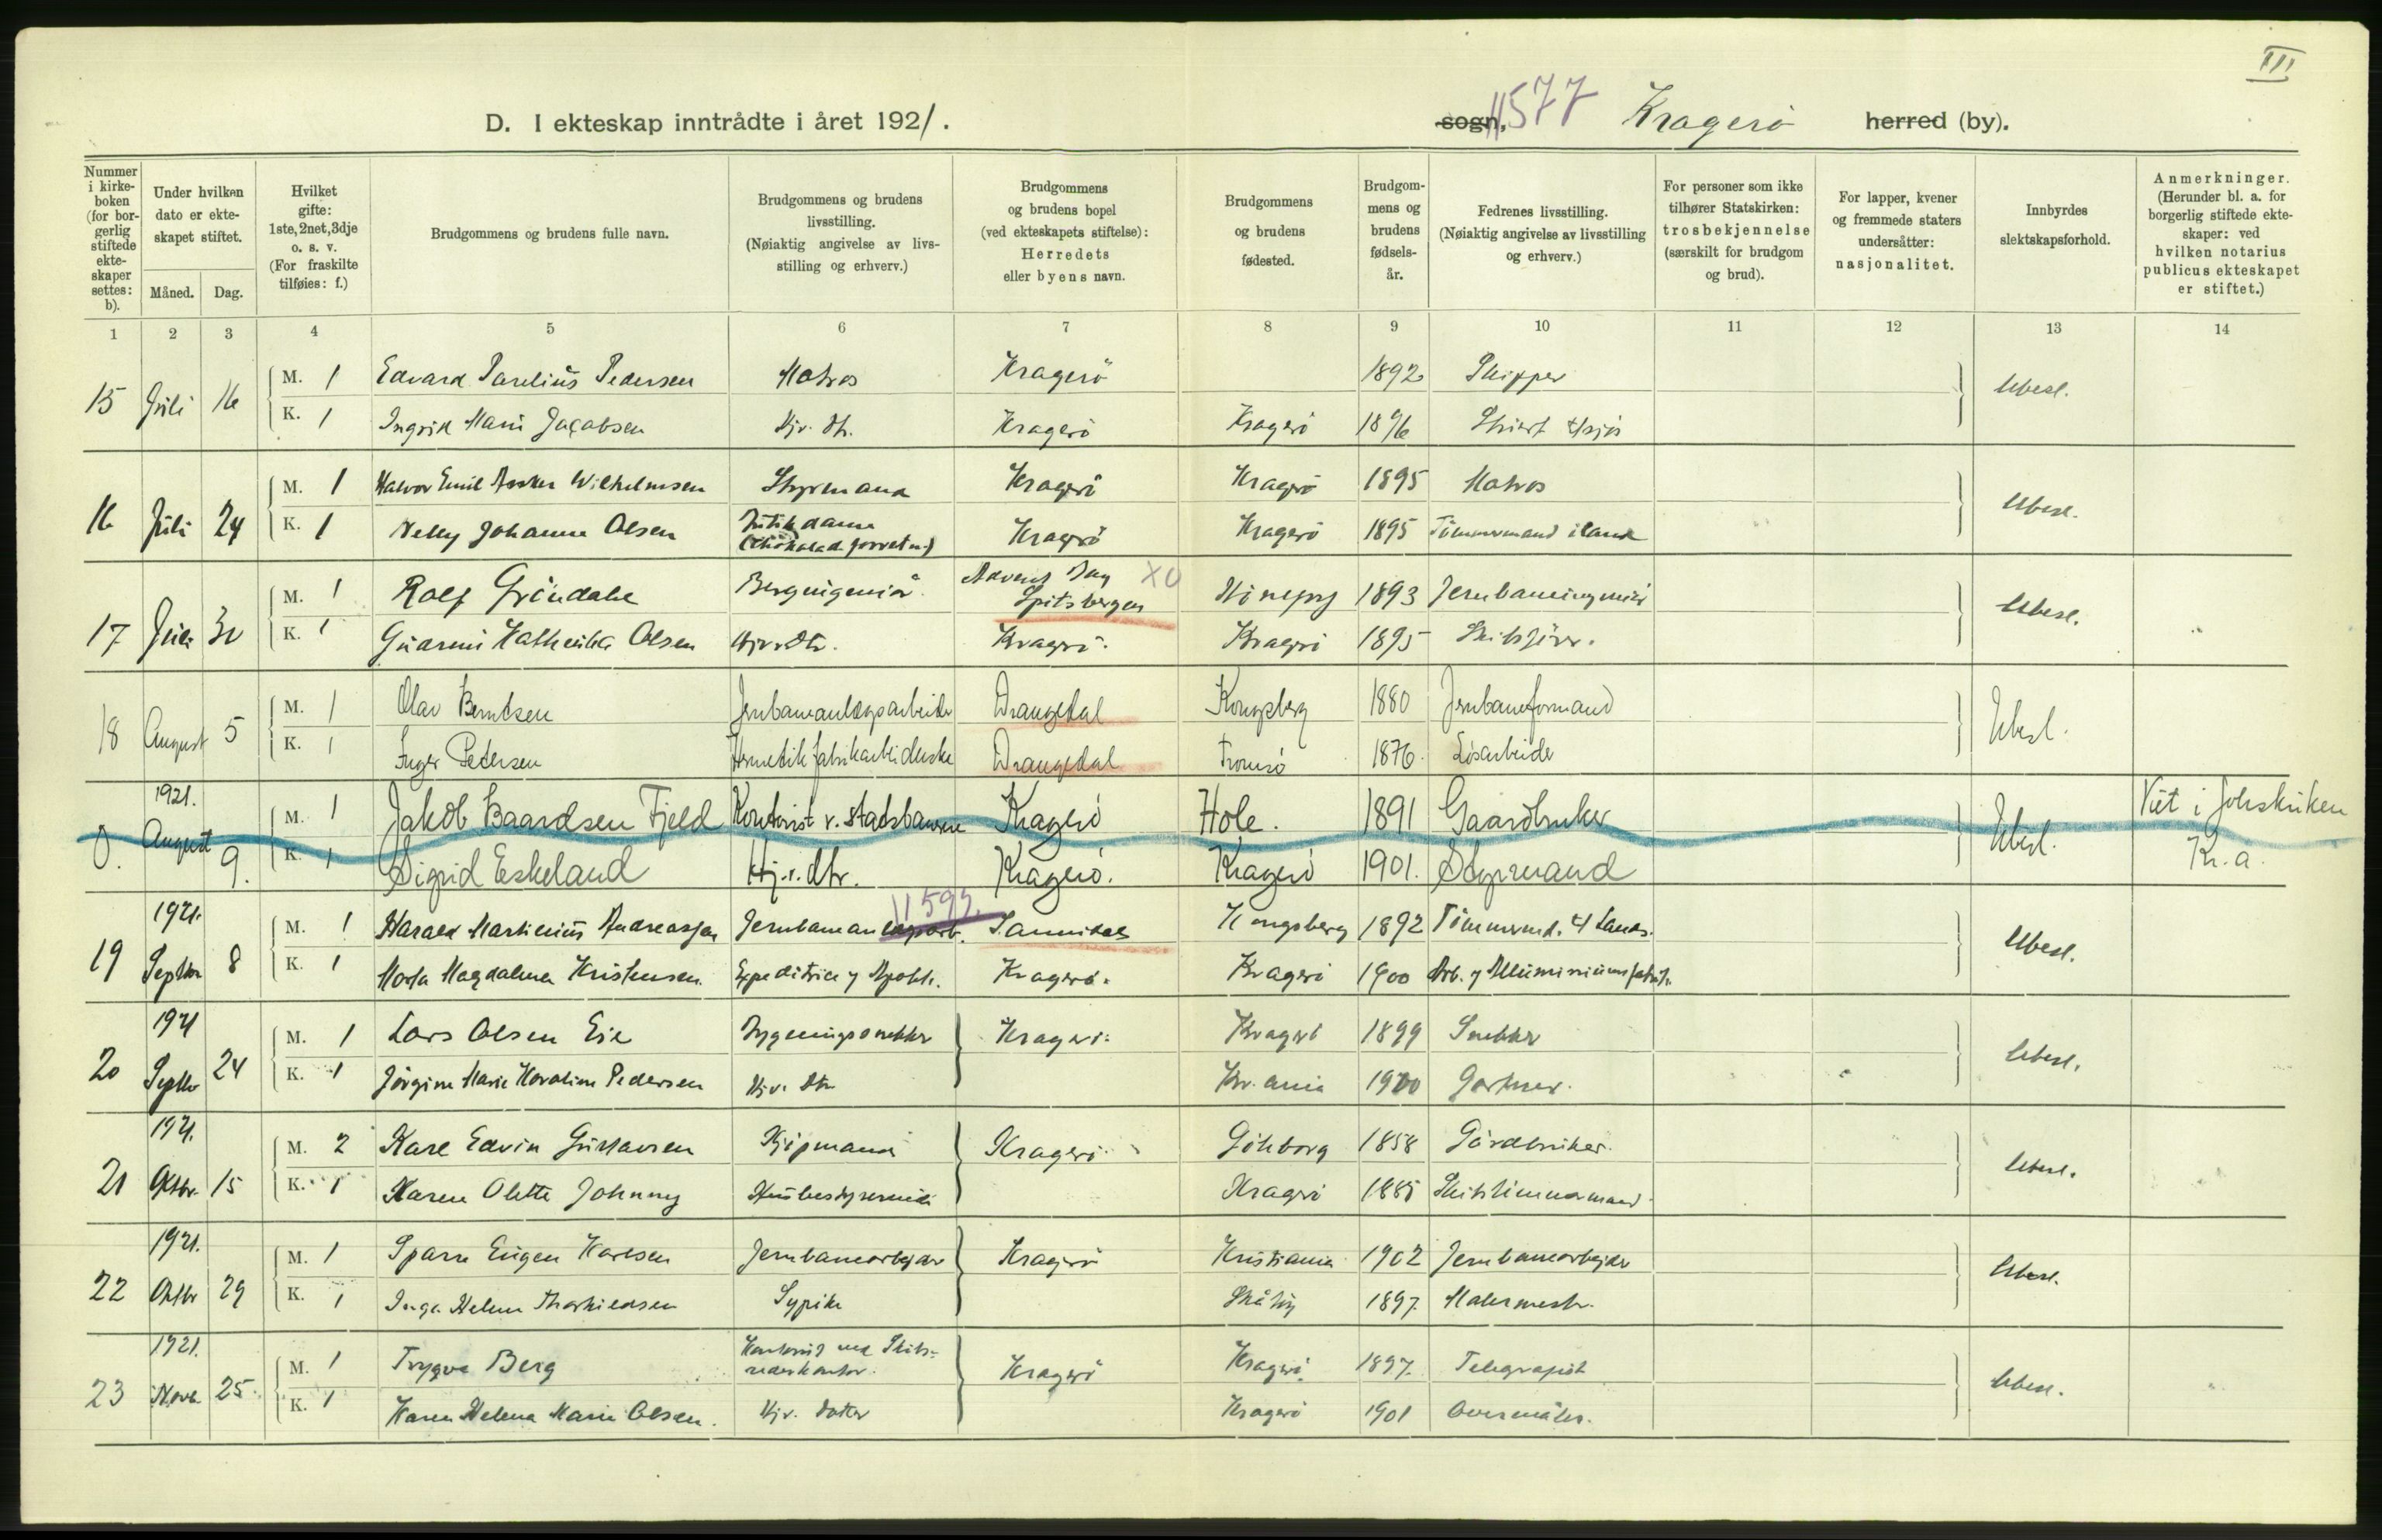 III
D. I ekteskap inntrådte i året 1921.
sogn, 11577 Kragerø herred (by).
Nummer i kirkeboken (for borgerlig stiftede ekteskaper settes: b).
Under hvilken dato er ekteskapet stiftet.
Måned. Dag.
Hvilket gifte: 1ste, 2net, 3dje o. s. v. (For fraskilte tilføies: f.)
Brudgommens og brudens fulle navn.
Brudgommens og brudens livsstilling. (Nøiaktig angivelse av livsstilling og erhverv.)
Brudgommens og brudens bopel (ved ekteskapets stiftelse): Herredets eller byens navn.
Brudgommens og brudens fødested.
Brudgommens og brudens fødselsår.
Fedrenes livsstilling. (Nøiaktig angivelse av livsstilling og erhverv.)
For personer som ikke tilhører Statskirken: trosbekjennelse (særskilt for brudgom og brud).
For lapper, kvener og fremmede staters undersåtter: nasjonalitet.
Innbyrdes slektskapsforhold.
Anmerkninger. (Herunder bl. a. for borgerlig stiftede ekteskaper: ved hvilken notarius publicus ekteskapet er stiftet.)
1 2 3 4 5 6 7 8 9 10 11 12 13 14
15 Juli 16 M. 1 Edvard Parelius Pedersen Matros Kragerö 1892 Skipper Ubesl.
K. 1 Ingrid Marie Jacobsen Hjv. dtr. Kragerö Kragerö 1896
16 Juli 24 M. 1 Halvor Emil Wilhelmsen Styrmand Kragerö Kragerö 1895 Matros Ubesl.
K. 1 Nelly Johanne Olsen Butikdame Kragerö Kragerö 1895 Tömmermand iland
17 Juli 30 M. 1 Rolf Gröndahl Bergingeniör Advent Bay XO Spitsbergen 1893 Jernbaneingeniör Ubesl.
K. 1 Kathinka Olsen Hjv. Dtr. Kragerö. Kragerö 1895 Skibsförer.
18 August 5 M. 1 Olav Berntsen Jernbaneanlægsarbeider Drangedal Kongsberg 1880 Jernbaneformand Ubesl.
K. 1 Inger Petersen Hermetikfabrikarbeiderske Drangedal Tromsö 1876 Løsarbeider
0. 1921. August 9. M. 1 Jakob Baardsen Fjeld Kontorist v. Statsbanene Kragerö Hole. 1891 Gaardbruker Ubesl. Viet i Johskirken Kr.a.
K. 1 Sigrid Eskeland Hj.v.dtr. Kragerö. Kragerö 1901. Styrmand
19 1921. Septbr 8 M. 1 Harald Martinius Andreassen Jernbaneanlægsarb. 11593. Sannidal Kongsberg 1892 Tömmermd. Ubesl.
K. 1 Magdalena Kristensen. Expeditrice Kragerö. Kragerö 1900 Arb. Alluminiumsfabrik.
20 1921 Septbr 24 M. 1 Lars Olsen Eie Bygningssnekker Kragerö Kragerö 1899 Snekker Ubesl.
K. 1 Jörgine Marie Pedersen Hjv. Dtr. Kr.ania 1900 Gartner.
21 1921. Oktbr. 15 M. 2 Karl Edvin Gustavsen Kjöpmand Kragerö Göteborg 1858 Gårdbruker. Ubesl.
K. 1 Karen Olette Johnny Husbestyrerinde Kragerö 1885 Skibstömmermand
22 1921. Oktbr 29 M. 1 Eugen Karlsen Jernbanearbeider Kragerö Kristiania 1902 Jernbanearbeider Ubesl.
K. 1 Inga Helene Thorkildsen Sypike Skåtöy 1897. Malermestr.
23 1921. Novb 25. M. 1 Trygve Berg Kontorist ved Skibsrederkontor. Kragerö Kragerö 1897. Telegrafist Ubesl.
K. 1 Karen Helena Marie Olsen. Hjv. Datter Kragerö 1901